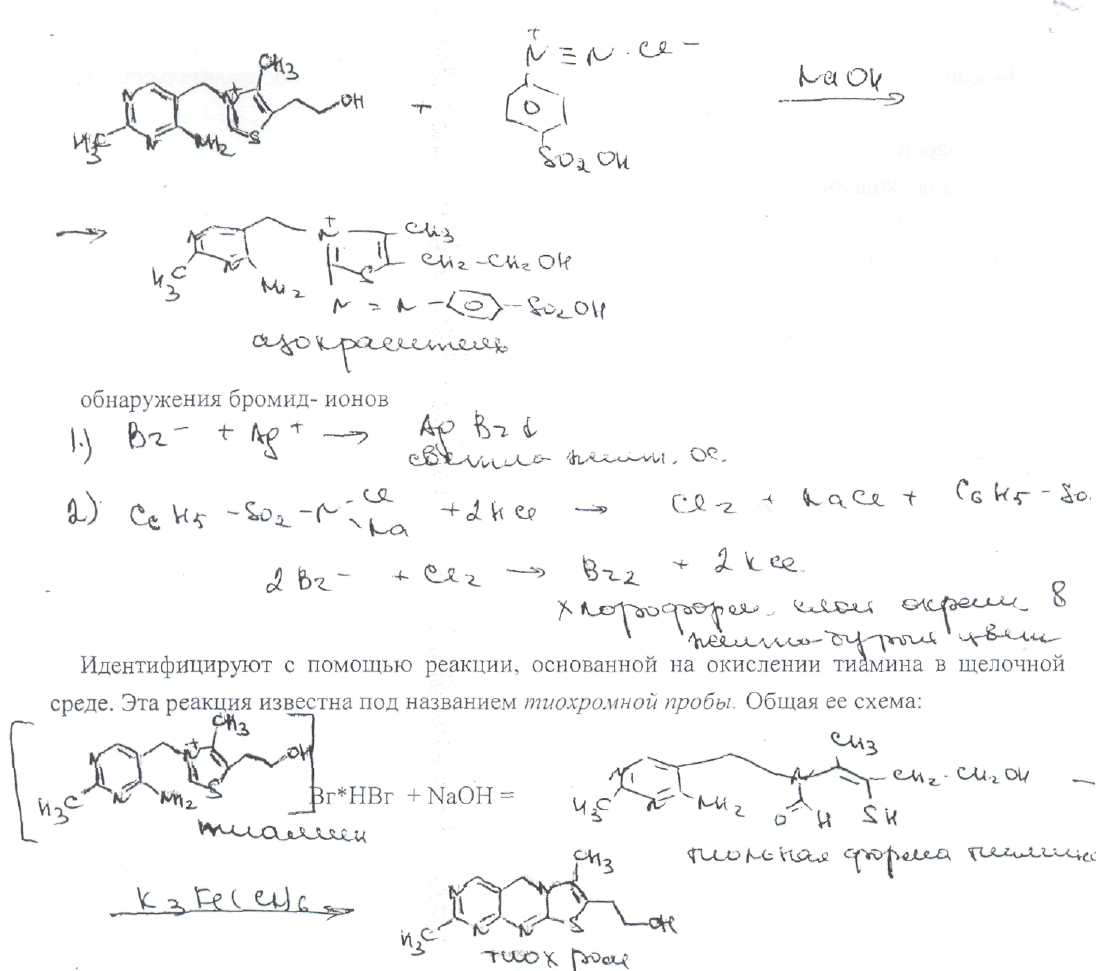 CH3 N ≡ N · Cl −
N N + OH + NaOH
H3C N NH2 S SO2OH
N N + CH3
H3C N NH2 S CH2-CH2OH
N = N - SO2OH
азокраситель
обнаружения бромид- ионов
1.) Br − + Ag + → Ag Br ↓
светло желт. ос.
2) C6H5 -SO2-N Cl Na +2HCl → Cl2 + NaCl + C6H5-SO
2Br − + Cl2 → Br2 + 2KCl.
хлороформ. слой окраш в
желто-бурый цвет
Идентифицируют с помощью реакции, основанной на окислении тиамина в щелочной
среде. Эта реакция известна под названием тиохромной пробы. Общая ее схема:
CH3 CH3
N N + OH N N CH2·CH2OH
H3C N NH2 S Br*HBr + NaOH = H3C N NH2 O H SH
тиамин тиольная форма тиамина
K3Fe(CN)6 CH3
N N OH
H3C N N S
тиохром